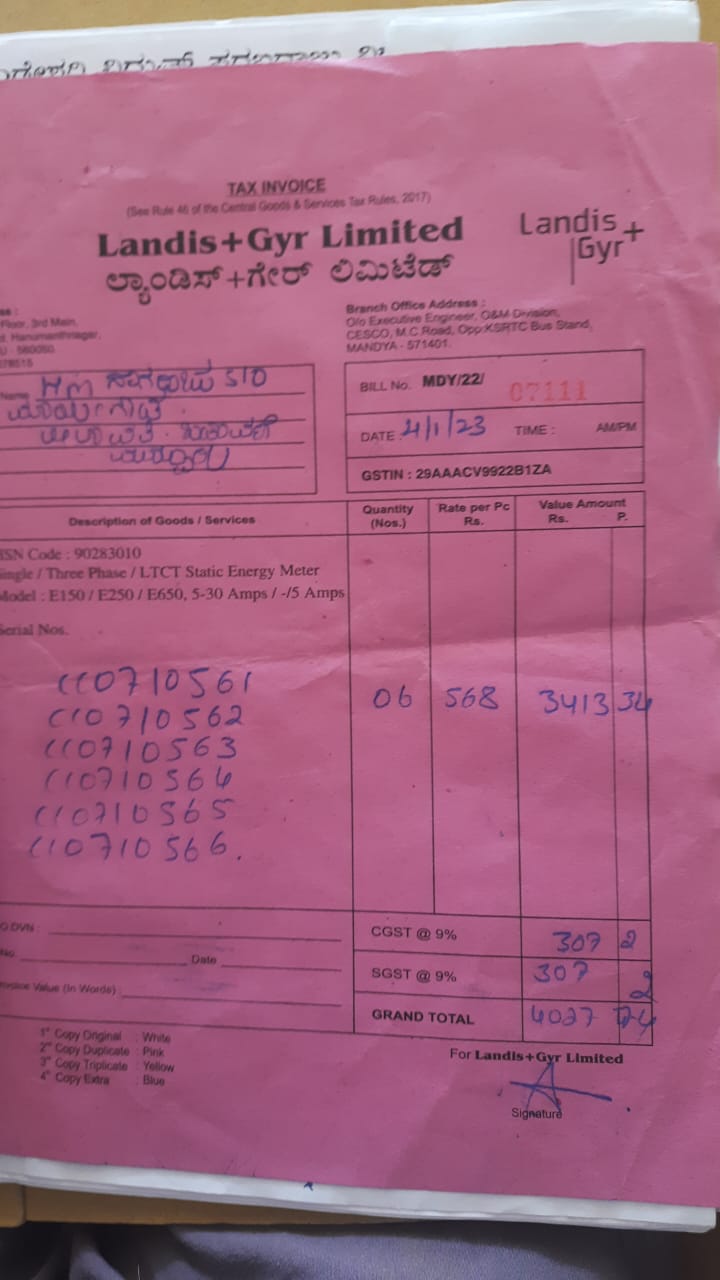 TAX INVOICE
(See Rule 46 of the Central Goods & Services Tax Rules, 2017)
Landis+Gyr Limited
ಲ್ಯಾಂಡಿಸ್+ಗೇರ್ ಲಿಮಿಟೆಡ್
Landis
Gyr+
Floor, 3rd Main,
Hanumanthnagar,
560050
Branch Office Address :
O/o Executive Engineer, O&M Division,
CESCO, M.C.Road, Opp:KSRTC Bus Stand,
MANDYA - 571401.
Name HM S/O
BILL No. MDY/22/ 07111
DATE : 4/1/23 TIME : AM/PM
GSTIN : 29AAACV9922B1ZA
Description of Goods / Services
Quantity (Nos.)
Rate per Pc Rs.
Value Amount Rs. P.
Code : 90283010
/ Three Phase / LTCT Static Energy Meter
E150 / E250 / E650, 5-30 Amps / -/5 Amps
Nos.
110710561
110710562
110710563
110710564
110710565
110710566.
06 568 3413 34
CGST @ 9% 307 2
SGST @ 9% 307 2
GRAND TOTAL 4027
Date
Value (In Words)
1st Copy Original : White
2nd Copy Duplicate : Pink
3rd Copy Triplicate : Yellow
4th Copy Extra : Blue
For Landis+Gyr Limited
Signature